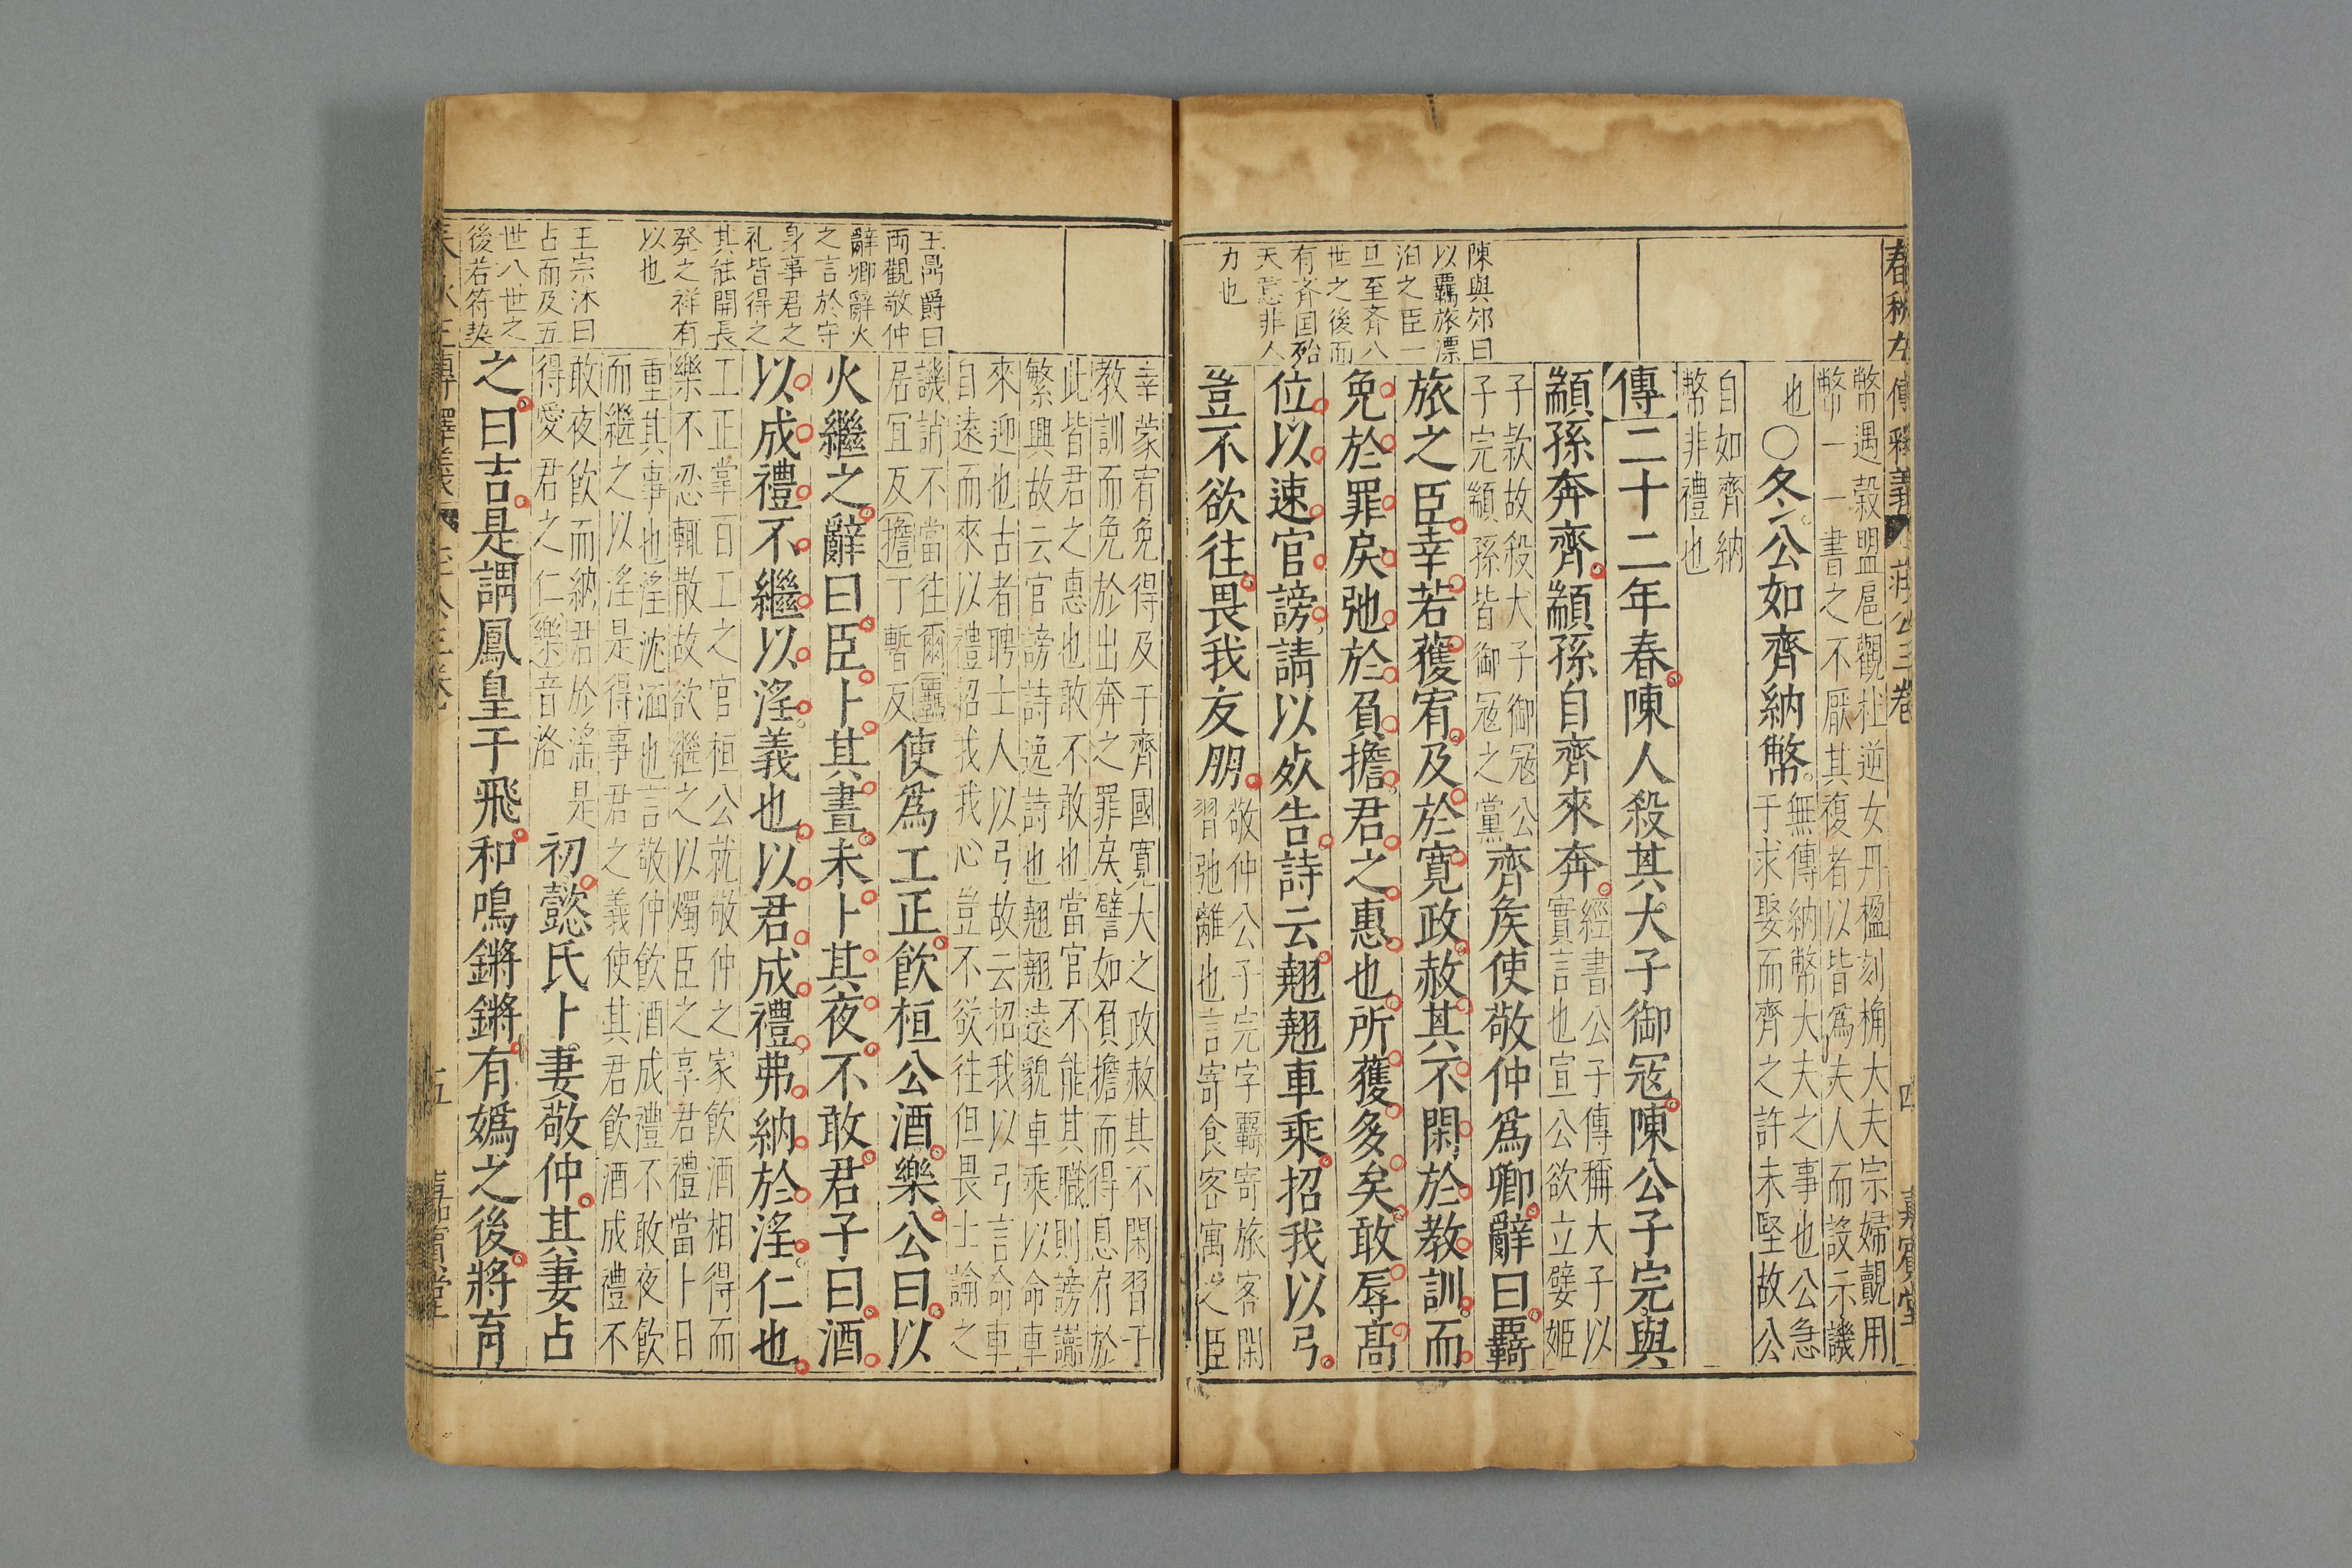 春秋左傳釋義
莊公三卷
四
嘉賓堂
幣遇穀盟扈觀社逆女丹楹刻桷大夫宗婦覿用
幣一一書之不厭其複者以皆為夫人而設示譏
也○冬公如齊納幣
無傳納幣大夫之事也公急
于求娶而齊之許未堅故公
自如齊納
幣非禮也
傳二十二年春陳人殺其大子御冦陳公子完與
顓孫奔齊顓孫自齊來奔
經書公子傳稱大子以
實言也宣公欲立嬖姬
子款故殺大子御冦公
子完顓孫皆御冦之黨
齊矦使敬仲為卿辭曰羈
旅之臣幸若獲宥及於寛政赦其不閑於教訓而
免於罪戾弛於負擔君之惠也所獲多矣敢辱高
位以速官謗請以死告詩云翹翹車乘招我以弓
豈不欲往畏我友朋
敬仲公子完字羈寄旅客閑
習弛離也言寄食客寓之臣
陳與郊曰
以羈旅漂
泊之臣一
旦至斉八
世之後而
有斉国殆
天意非人
力也
幸蒙宥免得及于齊國寛大之政赦其不閑習于
教訓而免於出奔之罪戾譬如負擔而得息肩於
此皆君之惠也敢不敢也當官不能其職則謗讟
繁興故云官謗詩逸詩也翹翹遠貌車乘以命車
來迎也古者聘士人以弓故云招我以弓言命車
自遠而來以禮招我我心豈不欲往但畏士論之
譏誚不當往爾羈
居宜反擔丁暫反
使為工正飲桓公酒樂公曰以
火繼之辭曰臣卜其晝未卜其夜不敢君子曰酒
以成禮不繼以淫義也以君成禮弗納於淫仁也
工正掌百工之官桓公就敬仲之家飲酒相得而
樂不忍輒散故欲繼之以燭臣之享君禮當卜日
重其事也淫沈湎也言敬仲飲酒成禮不敢夜飲
而繼之以淫是得事君之義使其君飲酒成禮不
敢夜飲而納君於淫是
得愛君之仁樂音洛
初懿氏卜妻敬仲其妻占
之曰吉是謂鳳皇于飛和鳴鏘鏘有媯之後將育
王鼎爵曰
両觀敬仲
辭卿辭火
之言於守
身事君之
礼皆得之
其能開長
発之祥有
以也
王宗沐曰
占而及五
世八世之
後若符契
五
嘉賓堂